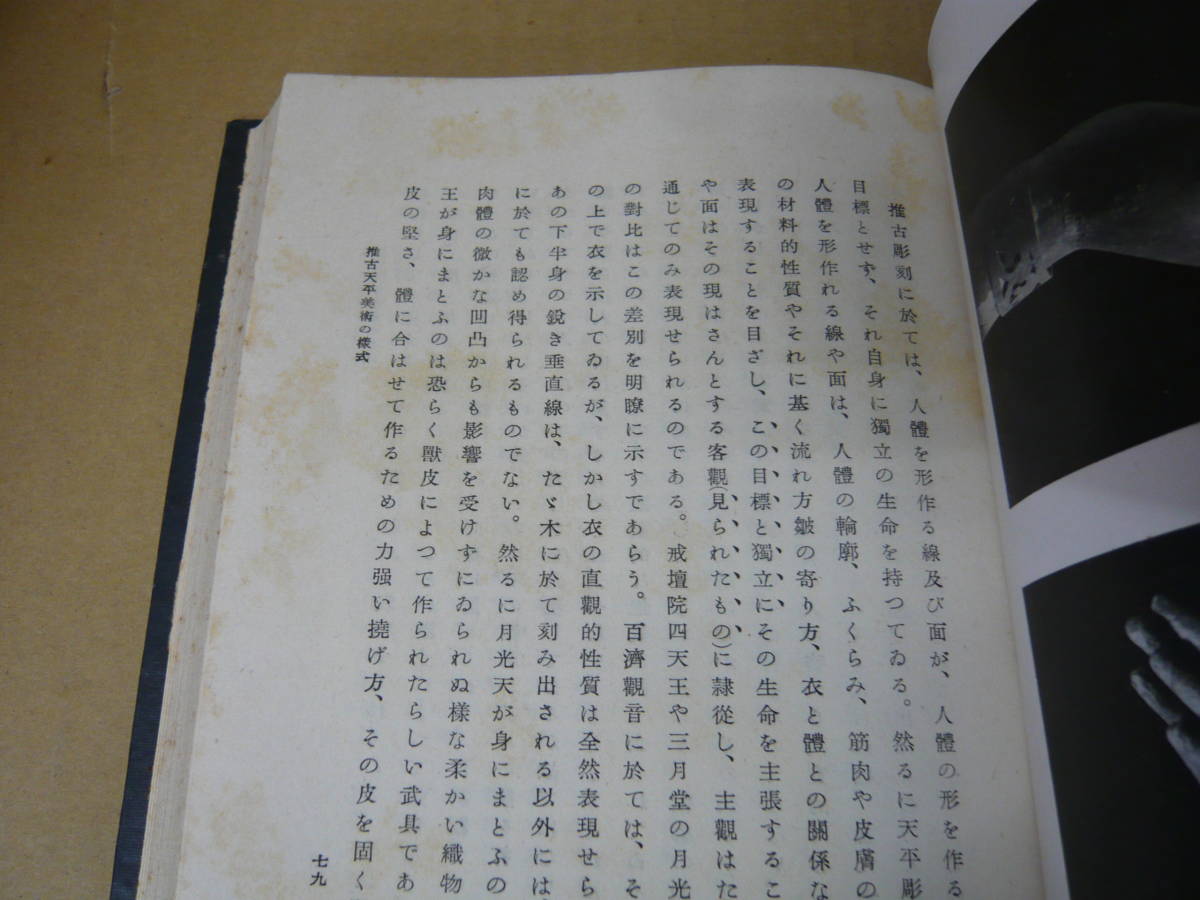 推古彫刻に於ては、人體を形作る線及び面が、人體の形を作る
目標とせず、それ自身に獨立の生命を持つてゐる。然るに天平彫
人體を形作れる線や面は、人體の輪廓、ふくらみ、筋肉や皮膚の
の材料的性質やそれに基く流れ方皺の寄り方、衣と體との關係な
表現することを目ざし、この目標と獨立にその生命を主張するこ
や面はその現はさんとする客觀(見られたもの)に隷從し、主觀はた
通じてのみ表現せられるのである。戒壇院四天王や三月堂の月光
の對比はこの差別を明瞭に示すであらう。百濟觀音に於ては、そ
の上で衣を示してゐるが、しかし衣の直觀的性質は全然表現せら
あの下半身の鋭き垂直線は、たゞ木に於て刻み出される以外には
に於ても認め得られるものでない。然るに月光天が身にまとふの
肉體の微かな凹凸からも影響を受けずにゐられぬ様な柔かい織物
王が身にまとふのは恐らく獸皮によつて作られたらしい武具であ
皮の堅さ、體に合はせて作るための力强い撓げ方、その皮を固く
推古天平美術の樣式
七九